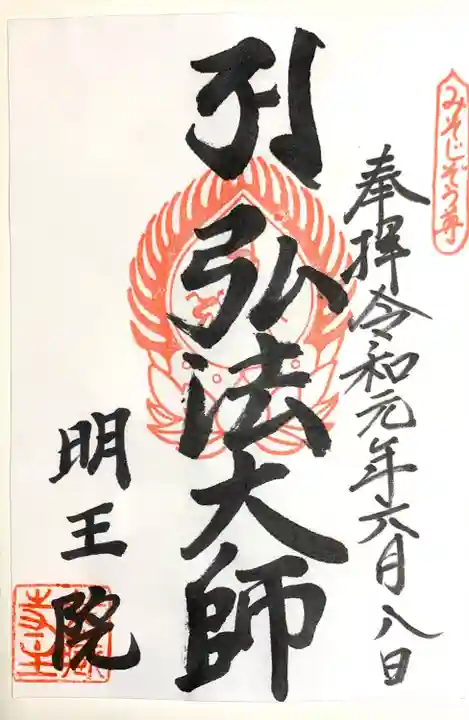 みそじぞう尊
奉拝令和元年六月八日
引弘法大師
明王院